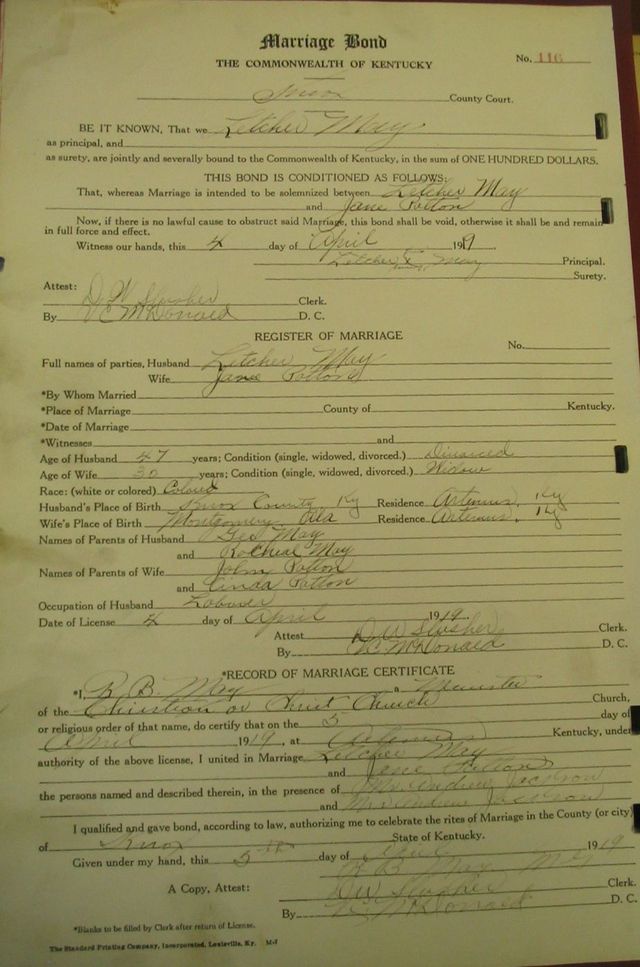 Marriage Bond
THE COMMONWEALTH OF KENTUCKY
No. 116
Knox County Court.
BE IT KNOWN, That we Letcher May
as principal, and
as surety, are jointly and severally bound to the Commonwealth of Kentucky, in the sum of ONE HUNDRED DOLLARS.
THIS BOND IS CONDITIONED AS FOLLOWS:
That, whereas Marriage is intended to be solemnized between Letcher May
and Jane Patton
Now, if there is no lawful cause to obstruct said Marriage, this bond shall be void, otherwise it shall be and remain
in full force and effect.
Witness our hands, this 4 day of April 1919.
Letcher May Principal.
Surety.
Attest:
D W Slusher Clerk.
By V C McDonald D. C.
REGISTER OF MARRIAGE
No.
Full names of parties, Husband Letcher May
Wife Jane Patton
*By Whom Married
*Place of Marriage County of Kentucky.
*Date of Marriage
*Witnesses and
Age of Husband 47 years; Condition (single, widowed, divorced.) Divorced
Age of Wife 30 years; Condition (single, widowed, divorced.) Widow
Race: (white or colored) Colored
Husband's Place of Birth Knox County Ky Residence Artemus, Ky
Wife's Place of Birth Montgomery Ala Residence Artemus, Ky
Names of Parents of Husband Geo May
and Racheal May
Names of Parents of Wife John Patton
and Cinda Patton
Occupation of Husband Laborer
Date of License 4 day of April 1919.
Attest D W Slusher Clerk.
By V C McDonald D. C.
*RECORD OF MARRIAGE CERTIFICATE
*I, R B May a Minister
of the Christian or Christ Church Church,
or religious order of that name, do certify that on the 5 day of
April 1919, at Artemus Kentucky, under
authority of the above license, I united in Marriage Letcher May
and Jane Patton
the persons named and described therein, in the presence of Mr Andrew Jackson
and Mrs Andrew Jackson
I qualified and gave bond, according to law, authorizing me to celebrate the rites of Marriage in the County (or city)
of Knox State of Kentucky.
Given under my hand, this 5th day of 1919
R B May
A Copy, Attest: D W Slusher Clerk.
By V C McDonald D. C.
*Blanks to be filled by Clerk after return of License.
The Standard Printing Company, Incorporated, Louisville, Ky. M-7